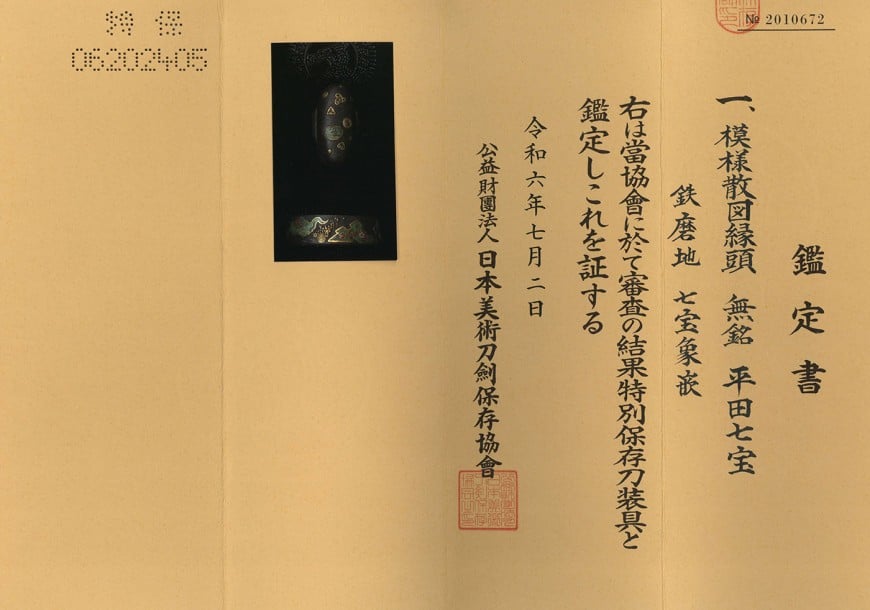 № 2010672
鑑定書
一、模様散図縁頭 無銘 平田七宝
鉄磨地 七宝象嵌
右は當協會に於て審査の結果特別保存刀装具と
鑑定しこれを証する
令和六年七月二日
公益財團法人 日本美術刀劍保存協會
特 保
06202405